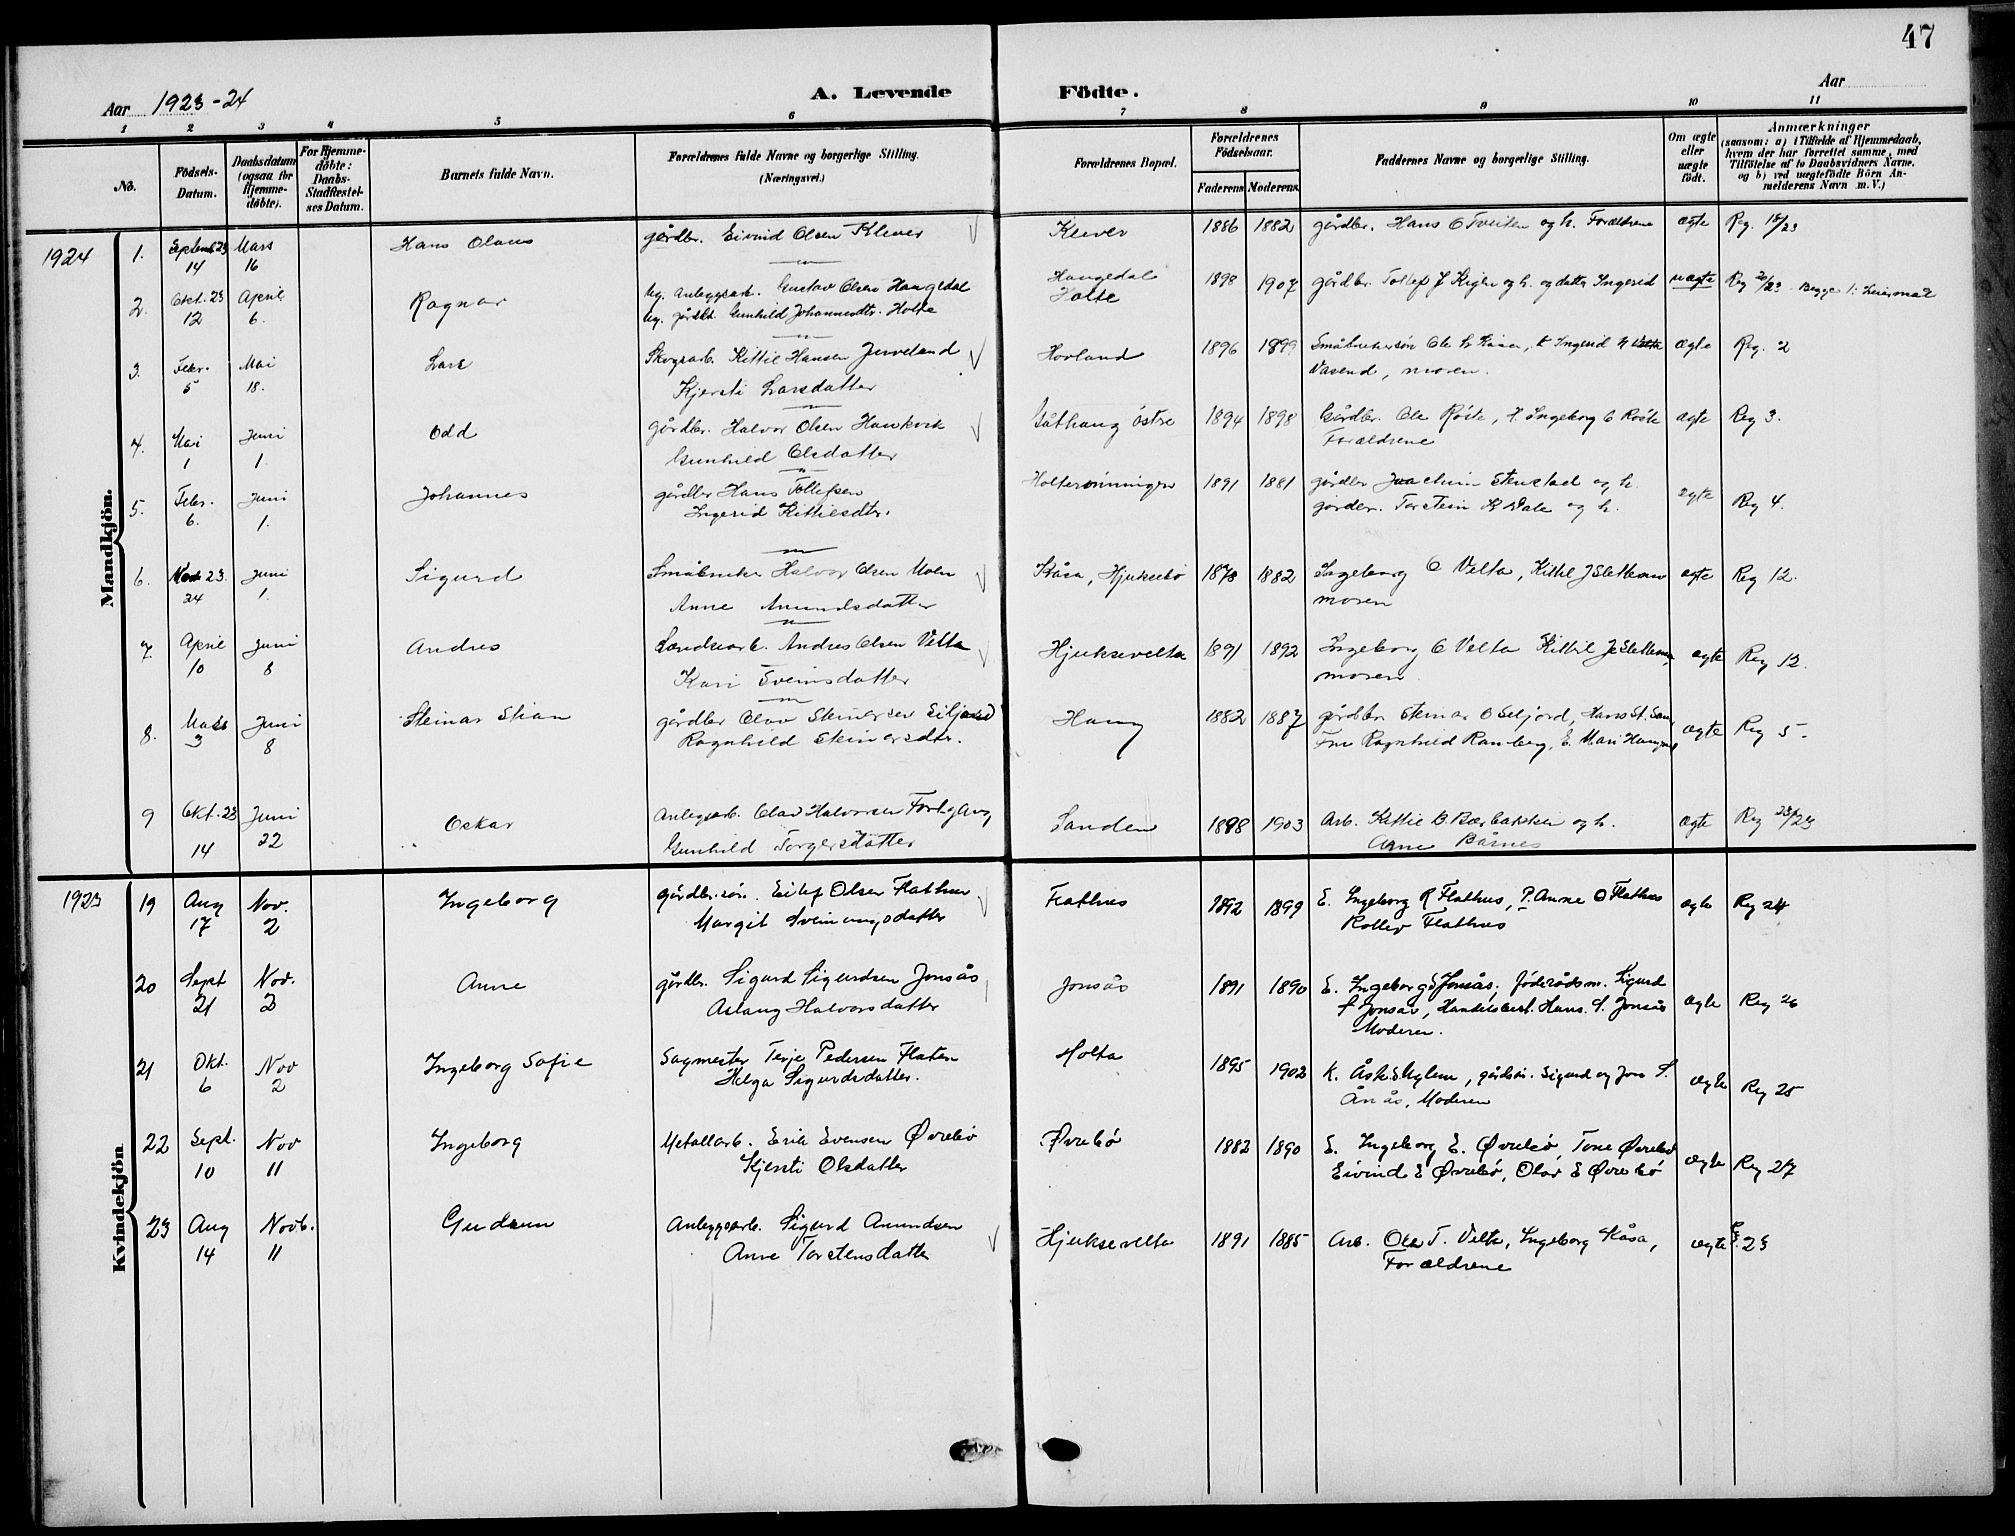 47
Aar 1923-24 A. Levende Födte. Aar
1 2 3 4 5 6 7 8 9 10 11
No. Födsels-Datum. Daabsdatum (ogsaa for Hjemme-döbte). For Hjemme-döbte: Daabs-Stadfæstel-ses Datum. Barnets fulde Navn. Forældrenes fulde Navne og borgerlige Stilling. (Næringsvei.) Forældrenes Bopæl. Forældrenes Födselsaar. Faderens Moderens Faddernes Navne og borgerlige Stilling. Om ægte eller uægte födt. Anmærkninger (saasom: a) i Tilfælde af Hjemmedaab, hvem der har forrettet samme, med Tilföielse af to Daabsvidners Navne, og b) ved uægtefödte Börn An-melderens Navn m. V.)
Mandkjön.
1924 1. Septemb 23 Mars Hans Olaus gårdbr. Eivind Olsen Klever Klever 1886 1882 gårdbr. Hans O Tveiten og h. Forældrene ægte Reg. 18/23
14 16
2. Okt. 23 April Ragnar Ug. Anleggsarb. Gustav Olsen Haugedal Haugedal 1898 1907 gårdbr. Tollef J og h. og datter Ingerid uægte Reg 20/23 Begge 1: Leiermål
12 6. Ug. gårdbr. Gunhild Johannesdtr. Holte Holte
3. Febr. Mai Lars Skogsarb. Kittil Hansen Juveland Hovland 1896 1899 Småbrukersön Ole H Kåsa, Ingerid ægte Reg. 2
5 18. Kjersti Larsdatter Vasend, moren.
4. Mai Juni Odd gårdbr. Halvor Olsen Haukvik Gåthaug östre 1894 1898 Gårdbr. Ole Röste, Ingeborg O Röste ægte Reg 3.
1 1. Gunhild Olsdatter Forældrene
5. Febr. Juni Johannes gårdbr Hans Tollefsen Holterönningen 1891 1881 gårdbr Joachim Stenstad og h. ægte Reg 4.
6. 1. Ingerid Kittilsdtr. gårdbr. Torstein K Dale og h.
6. 23. Juni Sigurd Småbruker Halvor Olsen Moen Kåsa, Hjuksebö 1878 1882 Ingeborg O Velta, Kittil J Slettemoen ægte Reg 12.
24 1. Anne Amundsdatter moren
7. April Juni Andres Sandsarb. Andres Olsen Velta Hjuksevelta 1891 1892 Ingeborg O Velta Kittil J Slettemoen, ægte Reg 13.
10 8 Kari Sveinsdatter moren
8. Mars Juni Steinar Stian gårdbr Olav Steinersen Seljord Haug 1882 1887 gårdbr. Steinar O Seljord, Hans St. ægte Reg 5.
3 8 Ragnhild Steinarsdtr. Fru Ragnhild Ramberg, E. Mari
9 Okt. 23 Juni Oskar Anlegsarb. Olav Halvorsen Sanden 1898 1903 Arb. Kittil B Bærbakken og h. ægte Reg 23/23
14 22 Gunhild Torgersdatter Anne Bårnes
Kvindekjön
1923 19 Aug Nov. Ingeborg gårdbr.sön. Eilef Olsen Flathus Flathus 1892 1899 E. Ingeborg R Flathus, P. Anne O Flathus ægte Reg 24
17 2 Margit Sveinungsdatter Rollev Flathus
20 Sept Nov. Anne gårdbr. Sigurd Sigurdsen Jonsås Jonsås 1891 1890 E. Ingeborg S Jonsås, föderådsm. Sigurd ægte Reg 26
21 2 Aslaug Halvorsdatter S Jonsås, Handelsbest. Hans. S. Jonsås
Moderen.
21 Okt. Nov Ingeborg Sofie Sagmester Terje Pedersen Flaten Holta 1895 1902 K. Åse S Mylene, gårdsön. Sigurd og Jon S. ægte Reg 25
6 2 Helga Sigurdsdatter. Ånås, Moderen
22 Sept. Nov Ingeborg Metallarb. Erik Evensen Øvrebö Øvrebö 1882 1890 E. Ingeborg E. Øvrebö, Tone Øvrebö ægte Reg 27
10 11 Kjersti Olsdatter Eivind E Øvrebö, Olav E Øvrebö
23 Aug Novb. Gudrun Anleggsarb. Sigurd Amundsen Hjuksevelta 1891 1885 Arb. Ole T. Velta, Ingeborg Kåsa, ægte 23
14 11 Anne Torstensdatter Forældrene